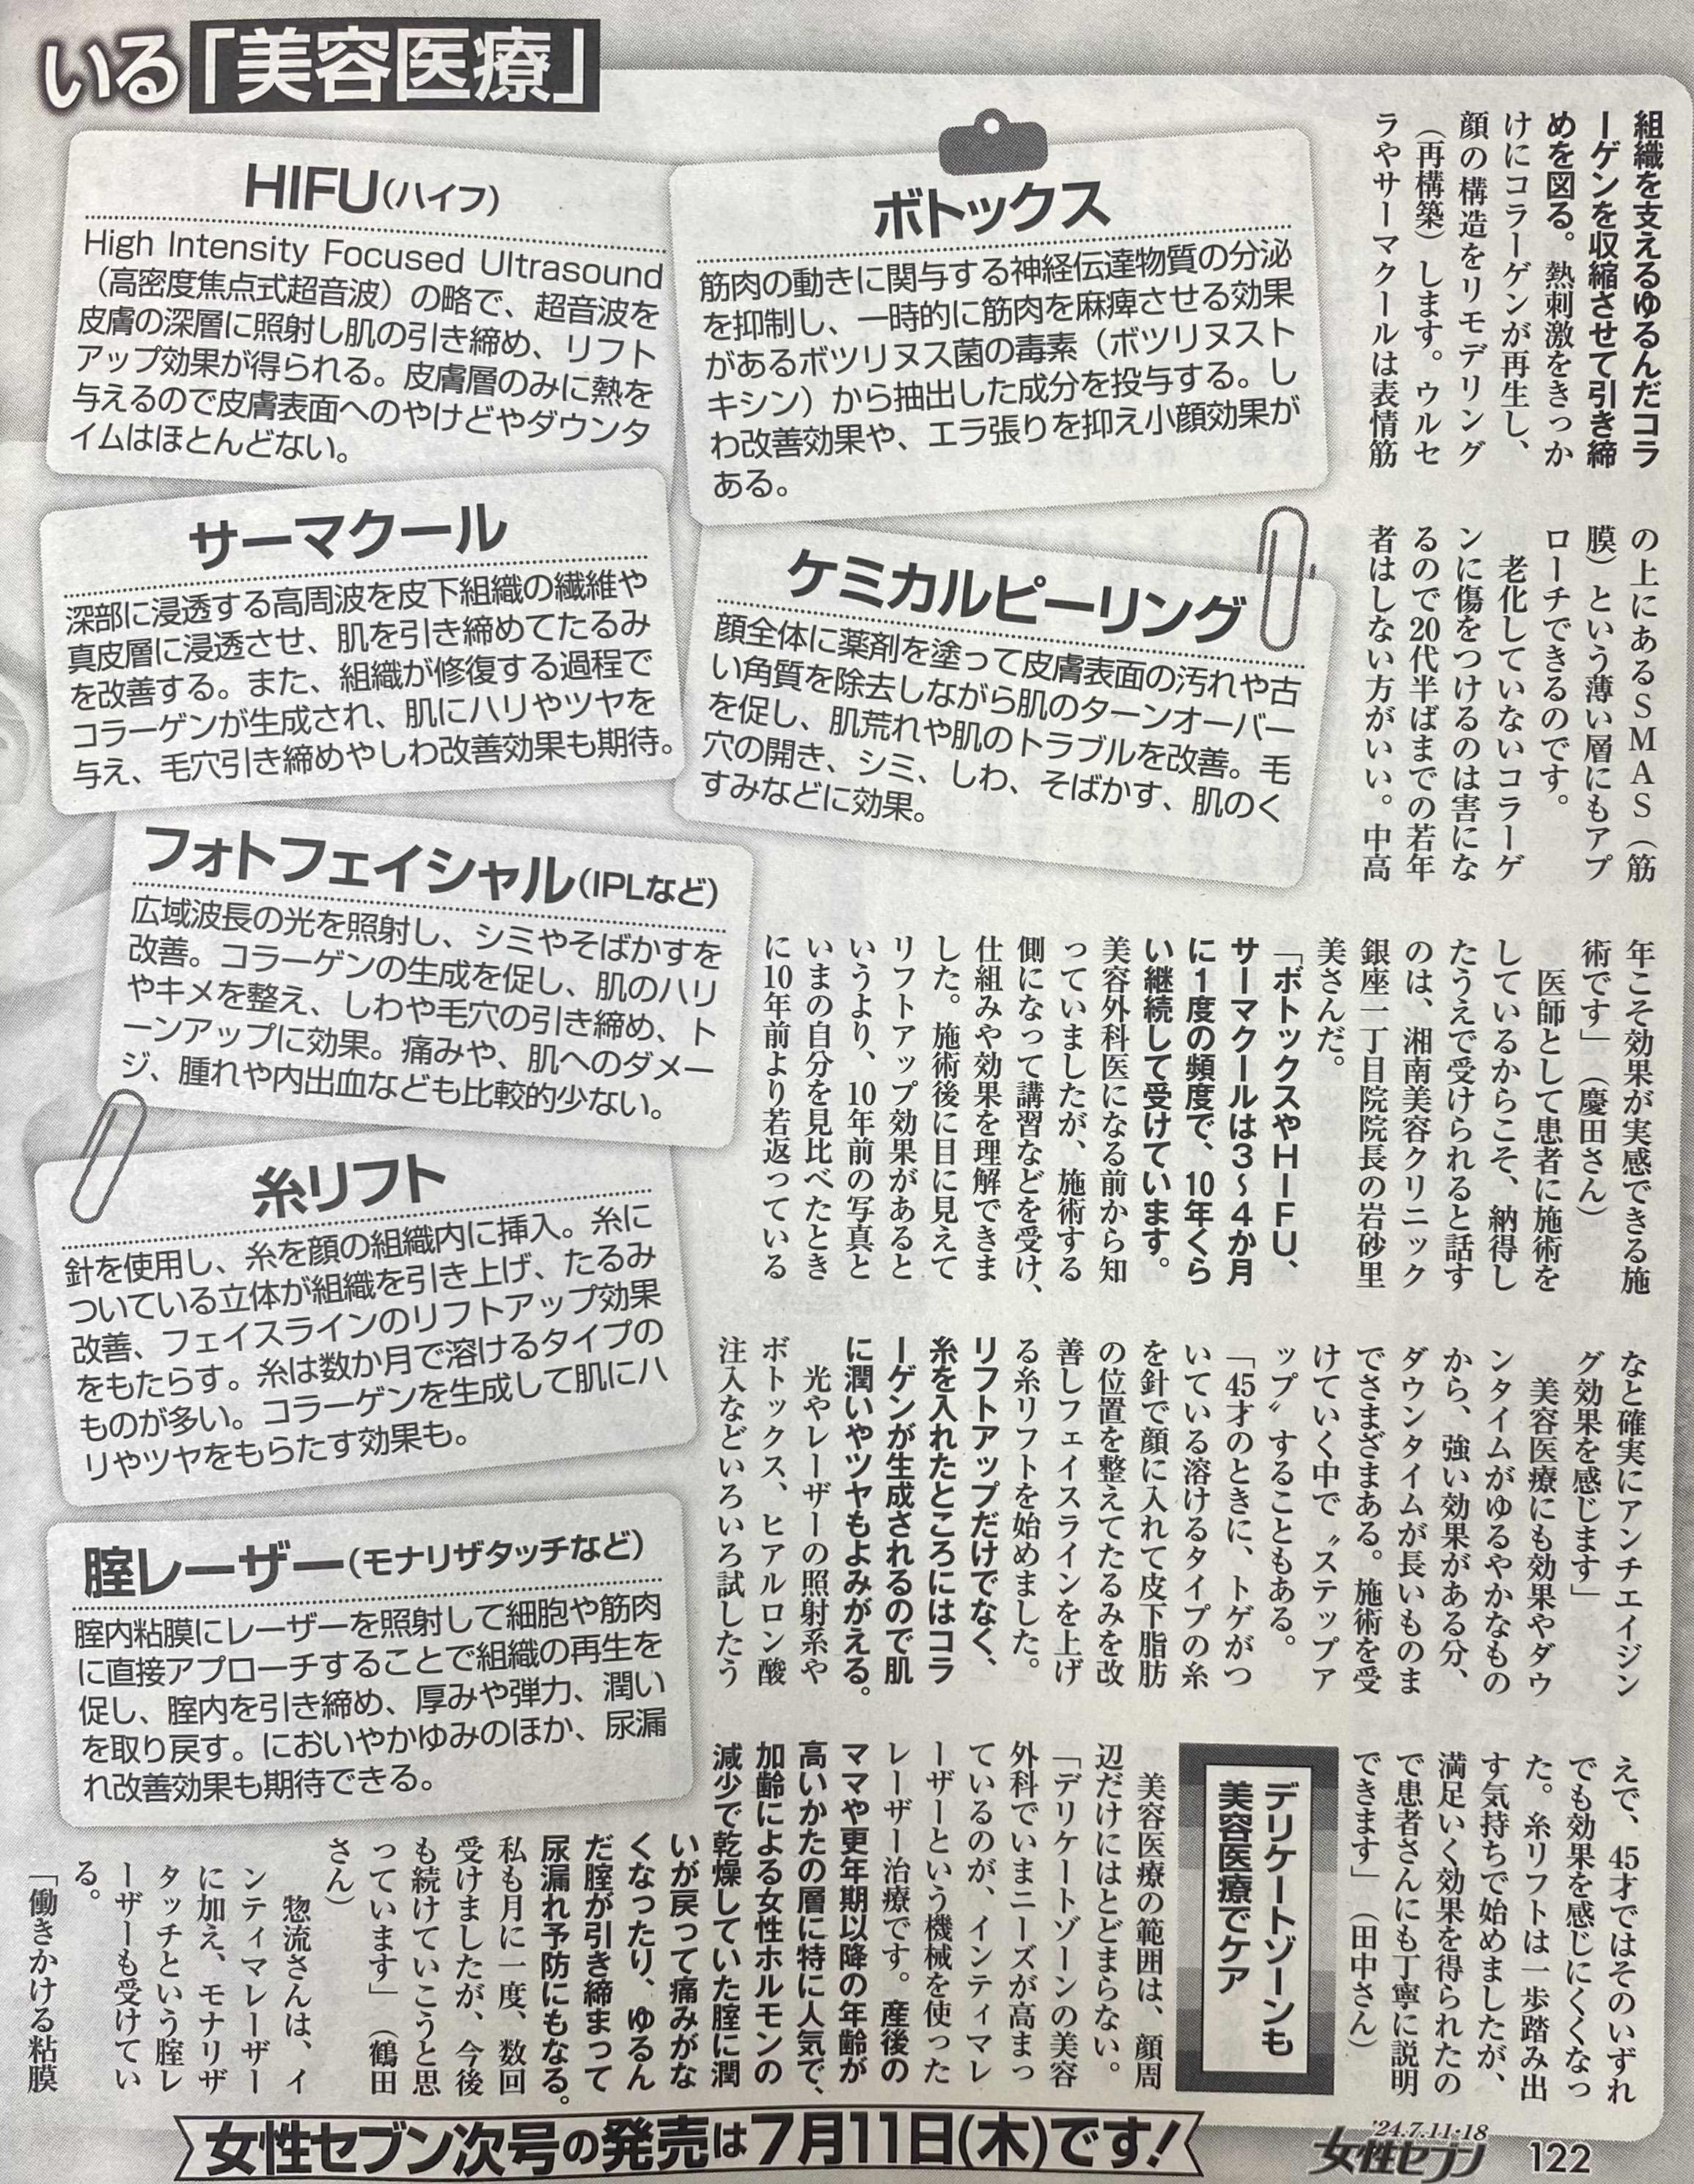 いる「美容医療」
組織を支えるゆるんだコラ
ーゲンを収縮させて引き締
めを図る。熱刺激をきっか
けにコラーゲンが再生し、
顔の構造をリモデリング
（再構築）します。ウルセ
ラやサーマクールは表情筋
の上にあるＳＭＡＳ（筋
膜）という薄い層にもアプ
ローチできるのです。
老化していないコラーゲ
ンに傷をつけるのは害にな
るので20代半ばまでの若年
者はしない方がいい。中高
年こそ効果が実感できる施
術です」（慶田さん）
医師として患者に施術を
しているからこそ、納得し
たうえで受けられると話す
のは、湘南美容クリニック
銀座一丁目院院長の岩砂里
美さんだ。
「ボトックスやＨＩＦＵ、
サーマクールは３〜４か月
に１度の頻度で、10年くら
い継続して受けています。
美容外科医になる前から知
っていましたが、施術する
側になって講習などを受け、
仕組みや効果を理解できま
した。施術後に目に見えて
リフトアップ効果があると
いうより、10年前の写真と
いまの自分を見比べたとき
に10年前より若返っている
なと確実にアンチエイジン
グ効果を感じます」
美容医療にも効果やダウ
ンタイムがゆるやかなもの
から、強い効果がある分、
ダウンタイムが長いものま
でさまざまある。施術を受
けていく中で〝ステップア
ップ〟することもある。
「45才のときに、トゲがつ
いている溶けるタイプの糸
を針で顔に入れて皮下脂肪
の位置を整えてたるみを改
善しフェイスラインを上げ
る糸リフトを始めました。
リフトアップだけでなく、
糸を入れたところにはコラ
ーゲンが生成されるので肌
に潤いやツヤもよみがえる。
光やレーザーの照射系や
ボトックス、ヒアルロン酸
注入などいろいろ試したう
えで、45才ではそのいずれ
でも効果を感じにくくなっ
た。糸リフトは一歩踏み出
す気持ちで始めましたが、
満足いく効果を得られたの
で患者さんにも丁寧に説明
できます」（田中さん）
デリケートゾーンも
美容医療でケア
美容医療の範囲は、顔周
辺だけにはとどまらない。
「デリケートゾーンの美容
外科でいまニーズが高まっ
ているのが、インティマレ
ーザーという機械を使った
レーザー治療です。産後の
ママや更年期以降の年齢が
高いかたの層に特に人気で、
加齢による女性ホルモンの
減少で乾燥していた腟に潤
いが戻って痛みがな
くなったり、ゆるん
だ腟が引き締まって
尿漏れ予防にもなる。
私も月に一度、数回
受けましたが、今後
も続けていこうと思
っています」（鶴田
さん）
惣流さんは、イ
ンティマレーザー
に加え、モナリザ
タッチという腟レ
ーザーも受けてい
る。
「働きかける粘膜
ボトックス
筋肉の動きに関与する神経伝達物質の分泌
を抑制し、一時的に筋肉を麻痺させる効果
があるボツリヌス菌の毒素（ボツリヌスト
キシン）から抽出した成分を投与する。し
わ改善効果や、エラ張りを抑え小顔効果が
ある。
ケミカルピーリング
顔全体に薬剤を塗って皮膚表面の汚れや古
い角質を除去しながら肌のターンオーバー
を促し、肌荒れや肌のトラブルを改善。毛
穴の開き、シミ、しわ、そばかす、肌のく
すみなどに効果。
HIFU(ハイフ)
High Intensity Focused Ultrasound
（高密度焦点式超音波）の略で、超音波を
皮膚の深層に照射し肌の引き締め、リフト
アップ効果が得られる。皮膚層のみに熱を
与えるので皮膚表面へのやけどやダウンタ
イムはほとんどない。
サーマクール
深部に浸透する高周波を皮下組織の繊維や
真皮層に浸透させ、肌を引き締めてたるみ
を改善する。また、組織が修復する過程で
コラーゲンが生成され、肌にハリやツヤを
与え、毛穴引き締めやしわ改善効果も期待。
フォトフェイシャル(IPLなど)
広域波長の光を照射し、シミやそばかすを
改善。コラーゲンの生成を促し、肌のハリ
やキメを整え、しわや毛穴の引き締め、ト
ーンアップに効果。痛みや、肌へのダメー
ジ、腫れや内出血なども比較的少ない。
糸リフト
針を使用し、糸を顔の組織内に挿入。糸に
ついている立体が組織を引き上げ、たるみ
改善、フェイスラインのリフトアップ効果
をもたらす。糸は数か月で溶けるタイプの
ものが多い。コラーゲンを生成して肌にハ
リやツヤをもらたす効果も。
腟レーザー(モナリザタッチなど)
腟内粘膜にレーザーを照射して細胞や筋肉
に直接アプローチすることで組織の再生を
促し、腟内を引き締め、厚みや弾力、潤い
を取り戻す。においやかゆみのほか、尿漏
れ改善効果も期待できる。
女性セブン次号の発売は7月11日(木)です!
'24.7.11・18
女性セブン 122